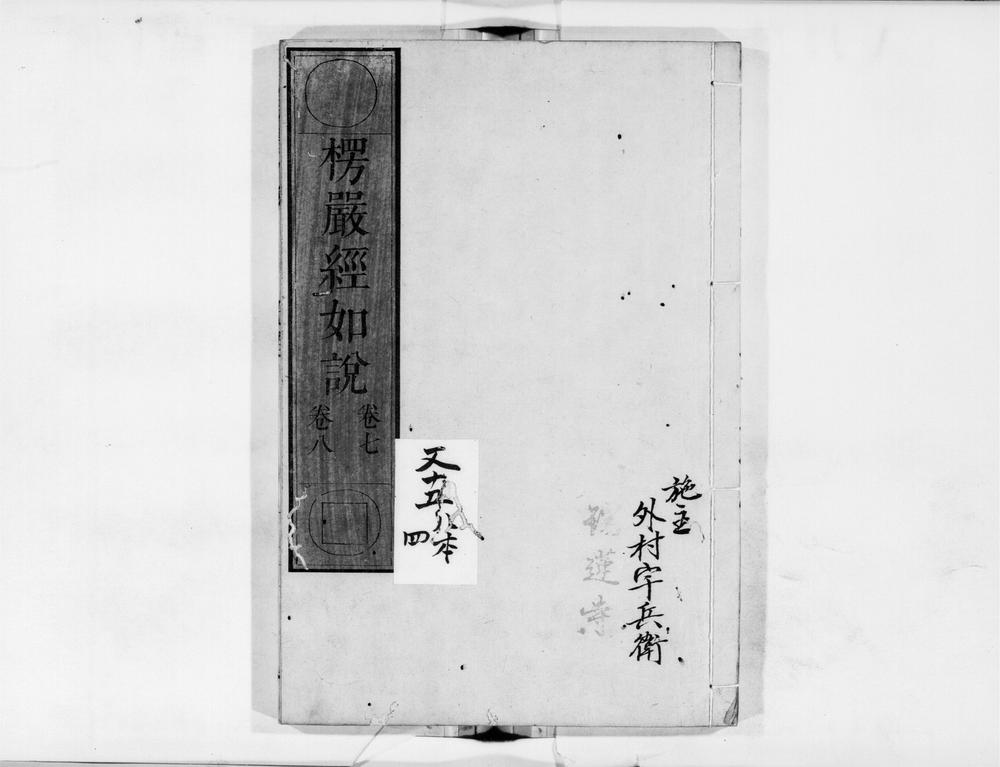 施主
外村宇兵衛
蓮寺
又十五ノ八本
四
楞嚴經如說
卷七
卷八